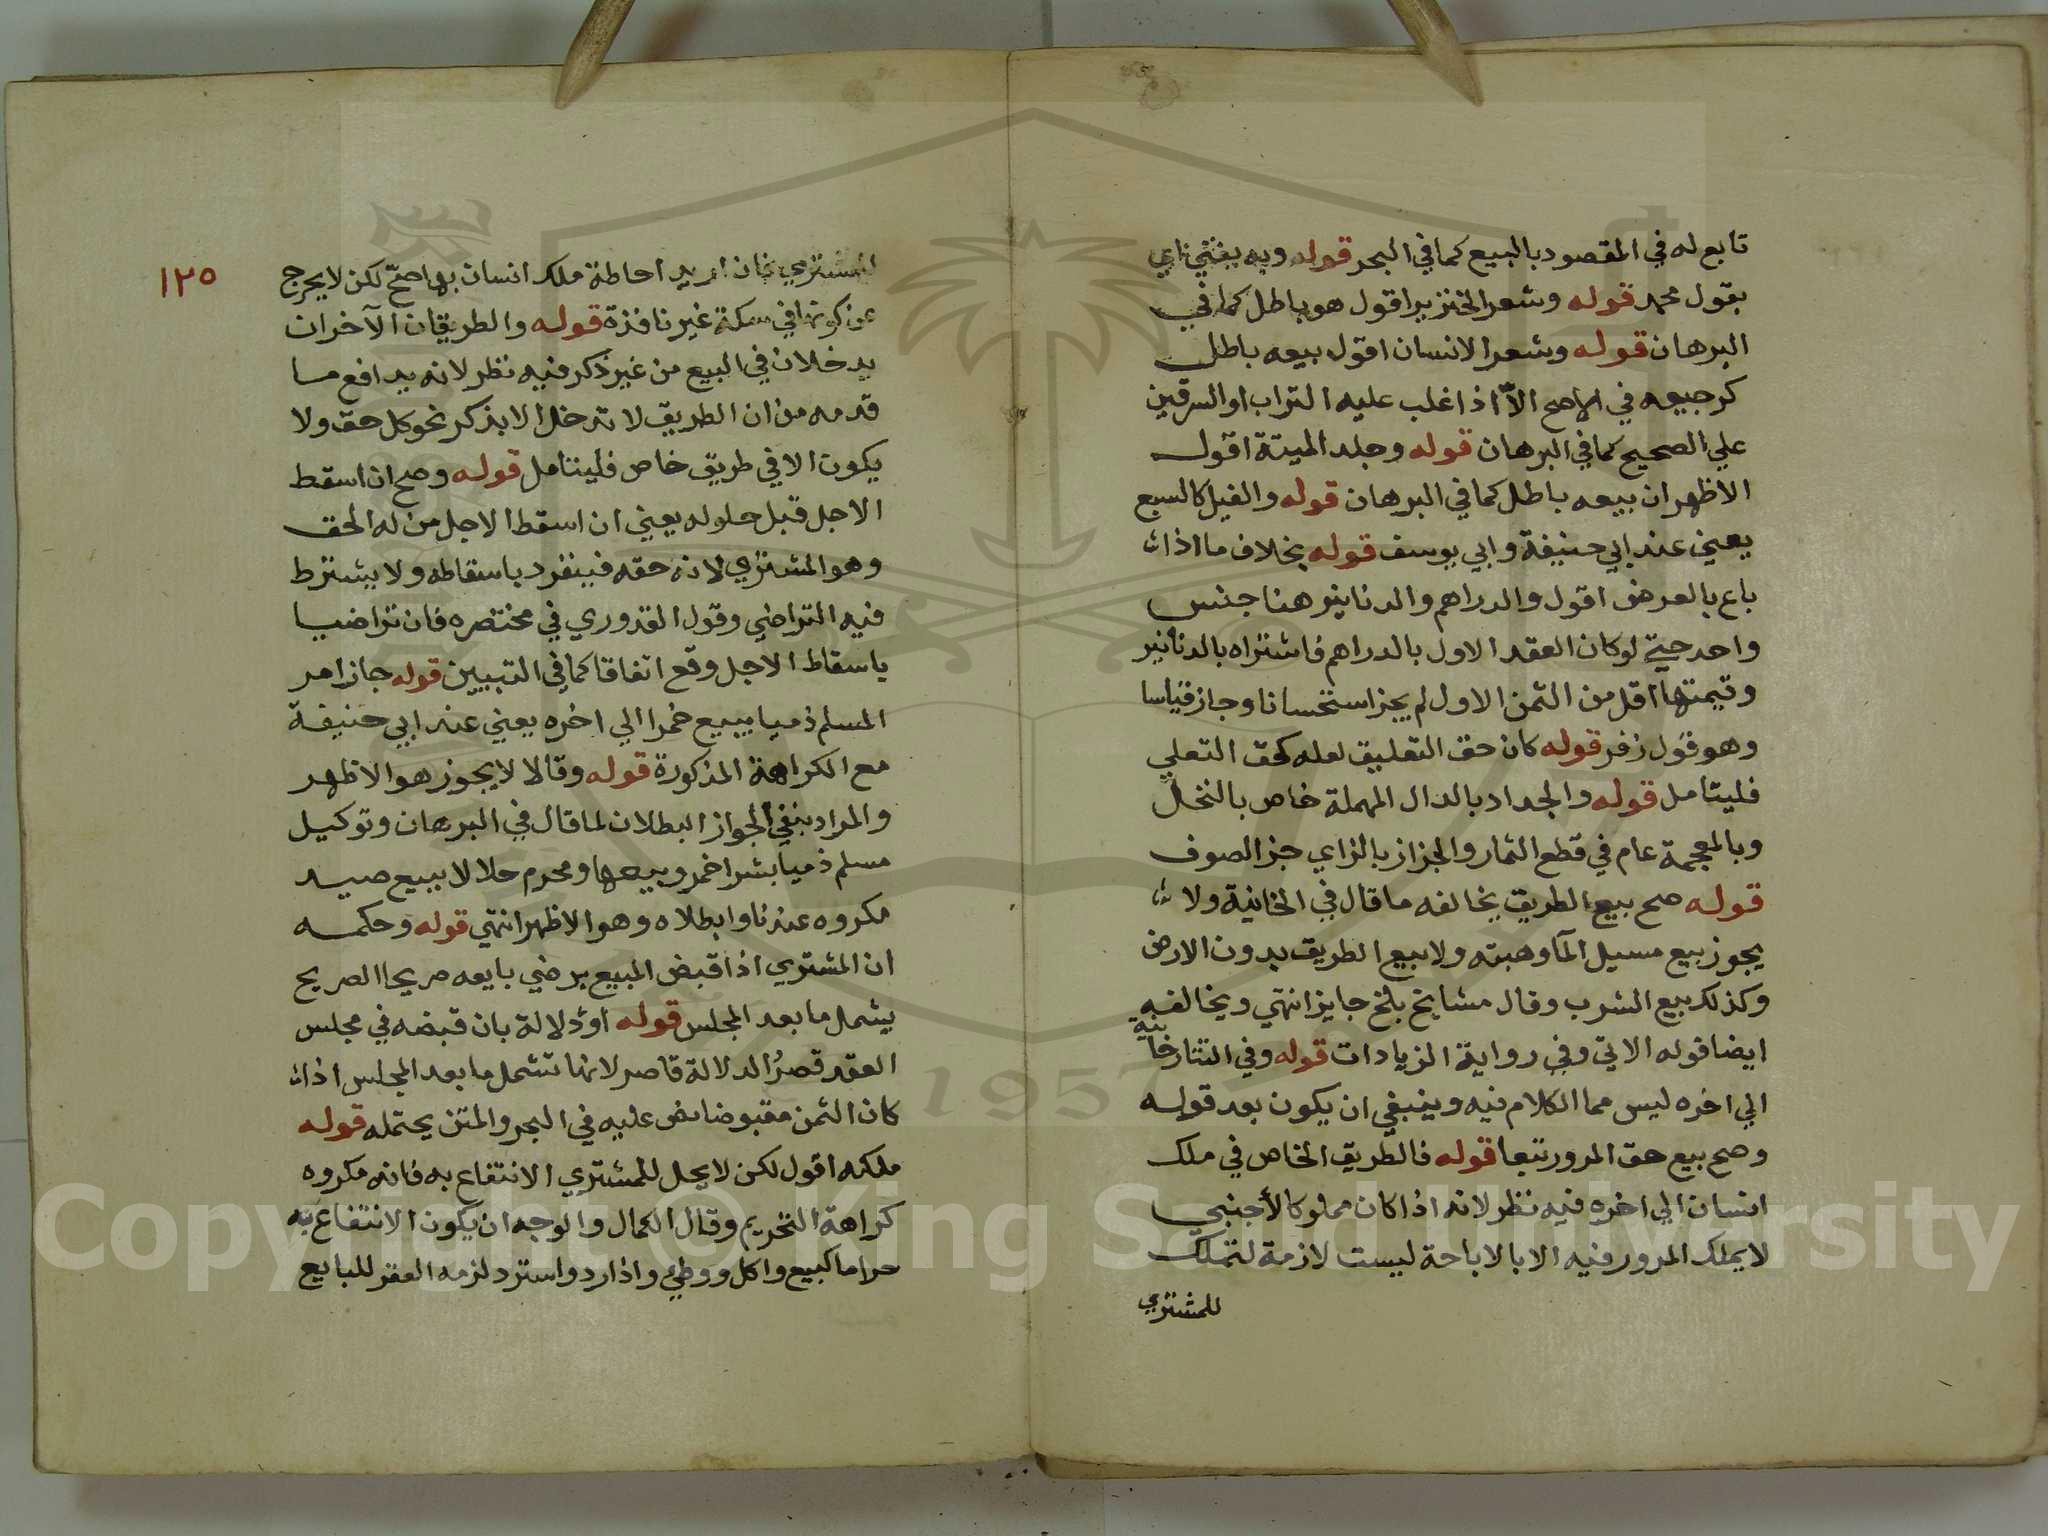 تابع له في المقصود بالمبيع كما في البحر قوله وبه يفتي اي
بقول محمد قوله وشعر الخنزير اقول هو باطل كما في
البرهان قوله وشعر الانسان اقول بيعه باطل
كرجيعه في الاصح الا اذا غلب عليه التراب او السرقين
علي الصحيح كما في البرهان قوله وجلد الميتة اقول
الاظهر ان بيعه باطل كما في البرهان قوله والفيل كالسبع
يعني عند ابي حنيفة وابي يوسف قوله بخلاف ما اذا
باع بالعرض اقول والدراهم والدنانير هنا جنس
واحد حتي لو كان العقد الاول بالدراهم فاشتراه بالدنانير
وقيمتها اقل من الثمن الاول لم يجز استحسانا وجاز قياسا
وهو قول زفر قوله كان حق التعليق لعله كحق التعلي
فليتامل قوله والجداد بالدال المهملة خاص بالنخل
وبالمعجمة عام في قطع الثمار والجزاز بالزاي جز الصوف
قوله صح بيع الطريق يخالفه ما قال في الخانية ولا
يجوز بيع مسيل المآ وهبته ولا بيع الطريق بدون الارض
وكذلك بيع الشرب وقال مشايخ بلخ جايز انتهي ويخالفه
ايضا قوله الاتي وفي رواية الزيادات قوله وفي التتارخانية
الي اخره ليس مما الكلام فيه وينبغي ان يكون بعد قوله
وصح بيع حق المرور تبعا قوله فالطريق الخاص في ملك
انسان الي اخره فيه نظر لانه اذا كان مملوكا لأجنبي
لا يملك المرور فيه الا بالاباحة ليست لازمة لتملك
للمشتري
١٢٥
للمشتري فان اريد احاطة ملك انسان بها صح لكن لا يخرج
عن كونها في سكة غير نافذة قوله والطريقان الآخران
يدخلان في البيع من غير ذكر فيه نظر لانه يدافع ما
قدمه من ان الطريق لا تدخل الا بذكر نحو كل حق ولا
يكون الا في طريق خاص فليتامل قوله وصح ان اسقط
الاجل قبل حلوله يعني ان اسقط الاجل من له الحق
وهو المشتري لانه حقه فينفرد باسقاطه ولا يشترط
فيه التراضي وقول القدوري في مختصره فان تراضيا
باسقاط الاجل وقع اتفاقا كما في التبيين قوله جاز امر
المسلم ذميا ببيع خمرا الي اخره يعني عند ابي حنيفة
مع الكراهة المذكورة قوله وقالا لا يجوز هو الاظهر
والمراد بنفي الجواز البطلان لما قال في البرهان وتوكيل
مسلم ذميا بشرا خمر وبيعها ومحرم حلالا ببيع صيد
مكروه عندنا وابطلاه وهو الاظهر انتهي قوله وحكمه
ان المشتري اذا قبض المبيع برضي بايعه صريحا الصريح
يشمل ما بعد المجلس قوله اودلالة بان قبضه في مجلس
العقد قصر الدلالة قاصر لانها تشمل ما بعد المجلس اذا
كان الثمن مقبوضا نص عليه في البحر والمتن يحتمله قوله
ملكه اقول لكن لا يحل للمشتري الانتفاع به فانه مكروه
كراهة التحريم وقال الكمال والوجه ان يكون الانتفاع به
حراما كبيع واكل ووطئ واذا رد واسترد لزمه العقر للبايع
Copyright © King Saud University
1957